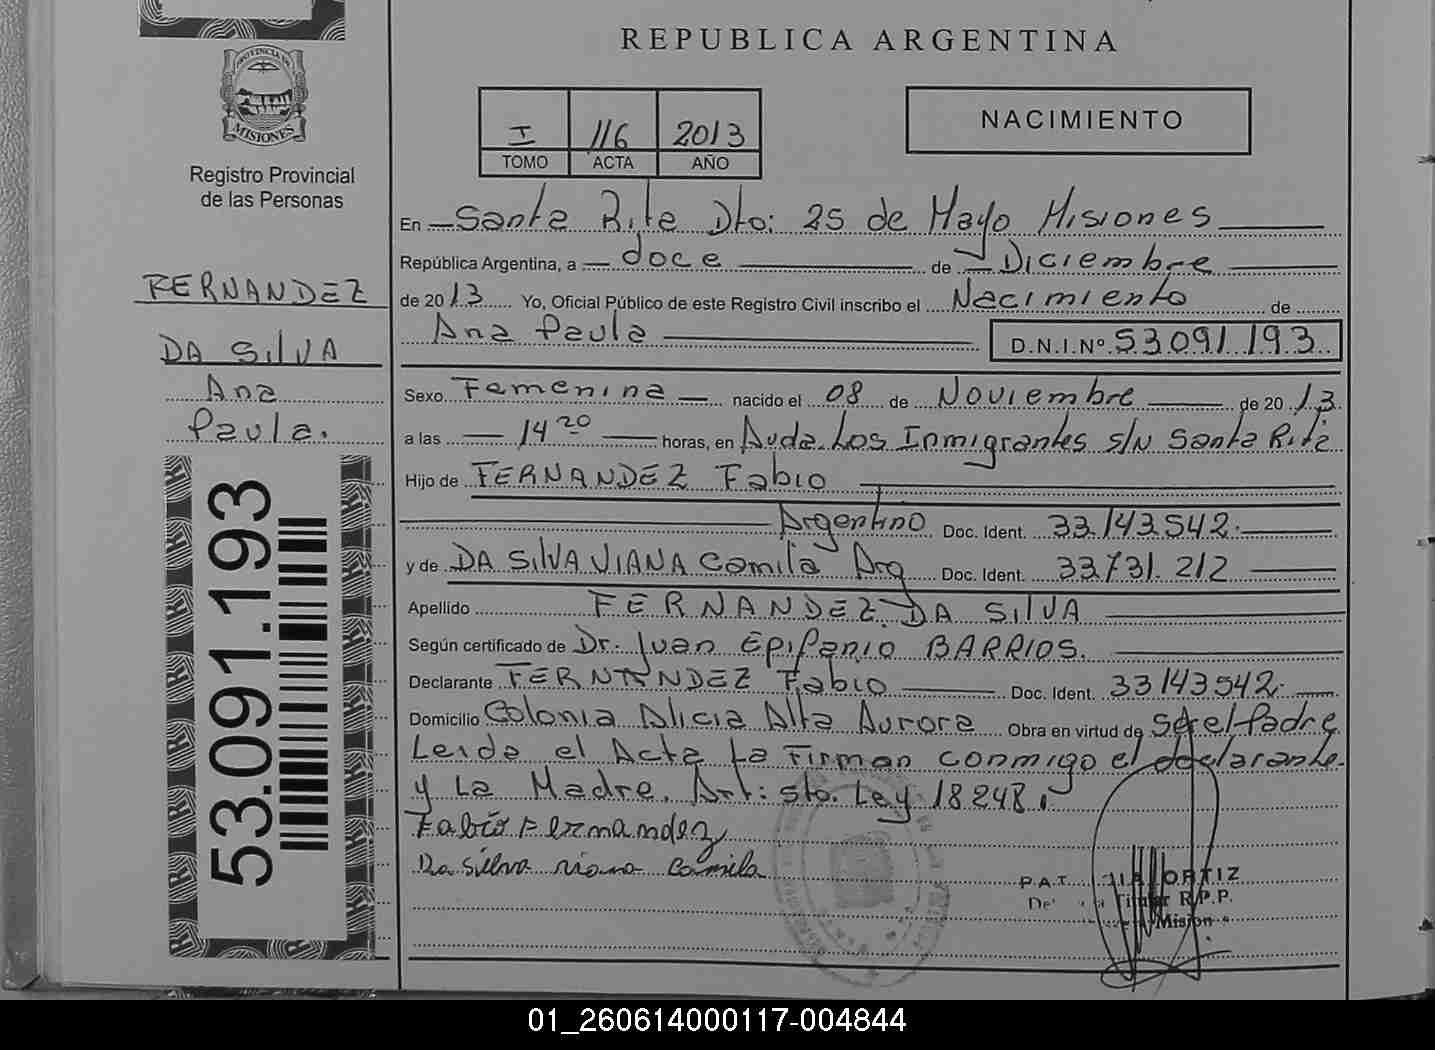 REPUBLICA ARGENTINA
PROVINCIA DE
MISIONES
Registro Provincial
de las Personas
I 116 2013
TOMO ACTA AÑO
NACIMIENTO
FERNANDEZ
DA SILVA
Ana
Paula.
53.091.193
En Santa Rita Dto: 25 de Mayo Misiones
República Argentina, a doce de Diciembre
de 2013 Yo, Oficial Público de este Registro Civil inscribo el Nacimiento de
Ana Paula D.N.I.Nº 53.091.193
Sexo Femenina nacido el 08 de Noviembre de 2013
a las 14 20 horas, en Avda. Los Inmigrantes s/N Santa Rita
Hijo de FERNANDEZ Fabio
Argentino Doc. Ident. 33.143.542.
y de DA SILVA VIANA Camila Arg Doc. Ident. 33.731.212
Apellido FERNANDEZ DA SILVA
Según certificado de Dr. Juan EpiFanio BARRIOS.
Declarante FERNANDEZ Fabio Doc. Ident. 33143542.
Domicilio Colonia Alicia Alta Aurora Obra en virtud de Ser el Padre
Leida el Acta La Firman conmigo el declarante
y La Madre. Art: 5to. Ley 18248.
Fabio Fernandez
Da Silva viana Camila
ORTIZ
Titular R.P.P.
01_260614000117-004844